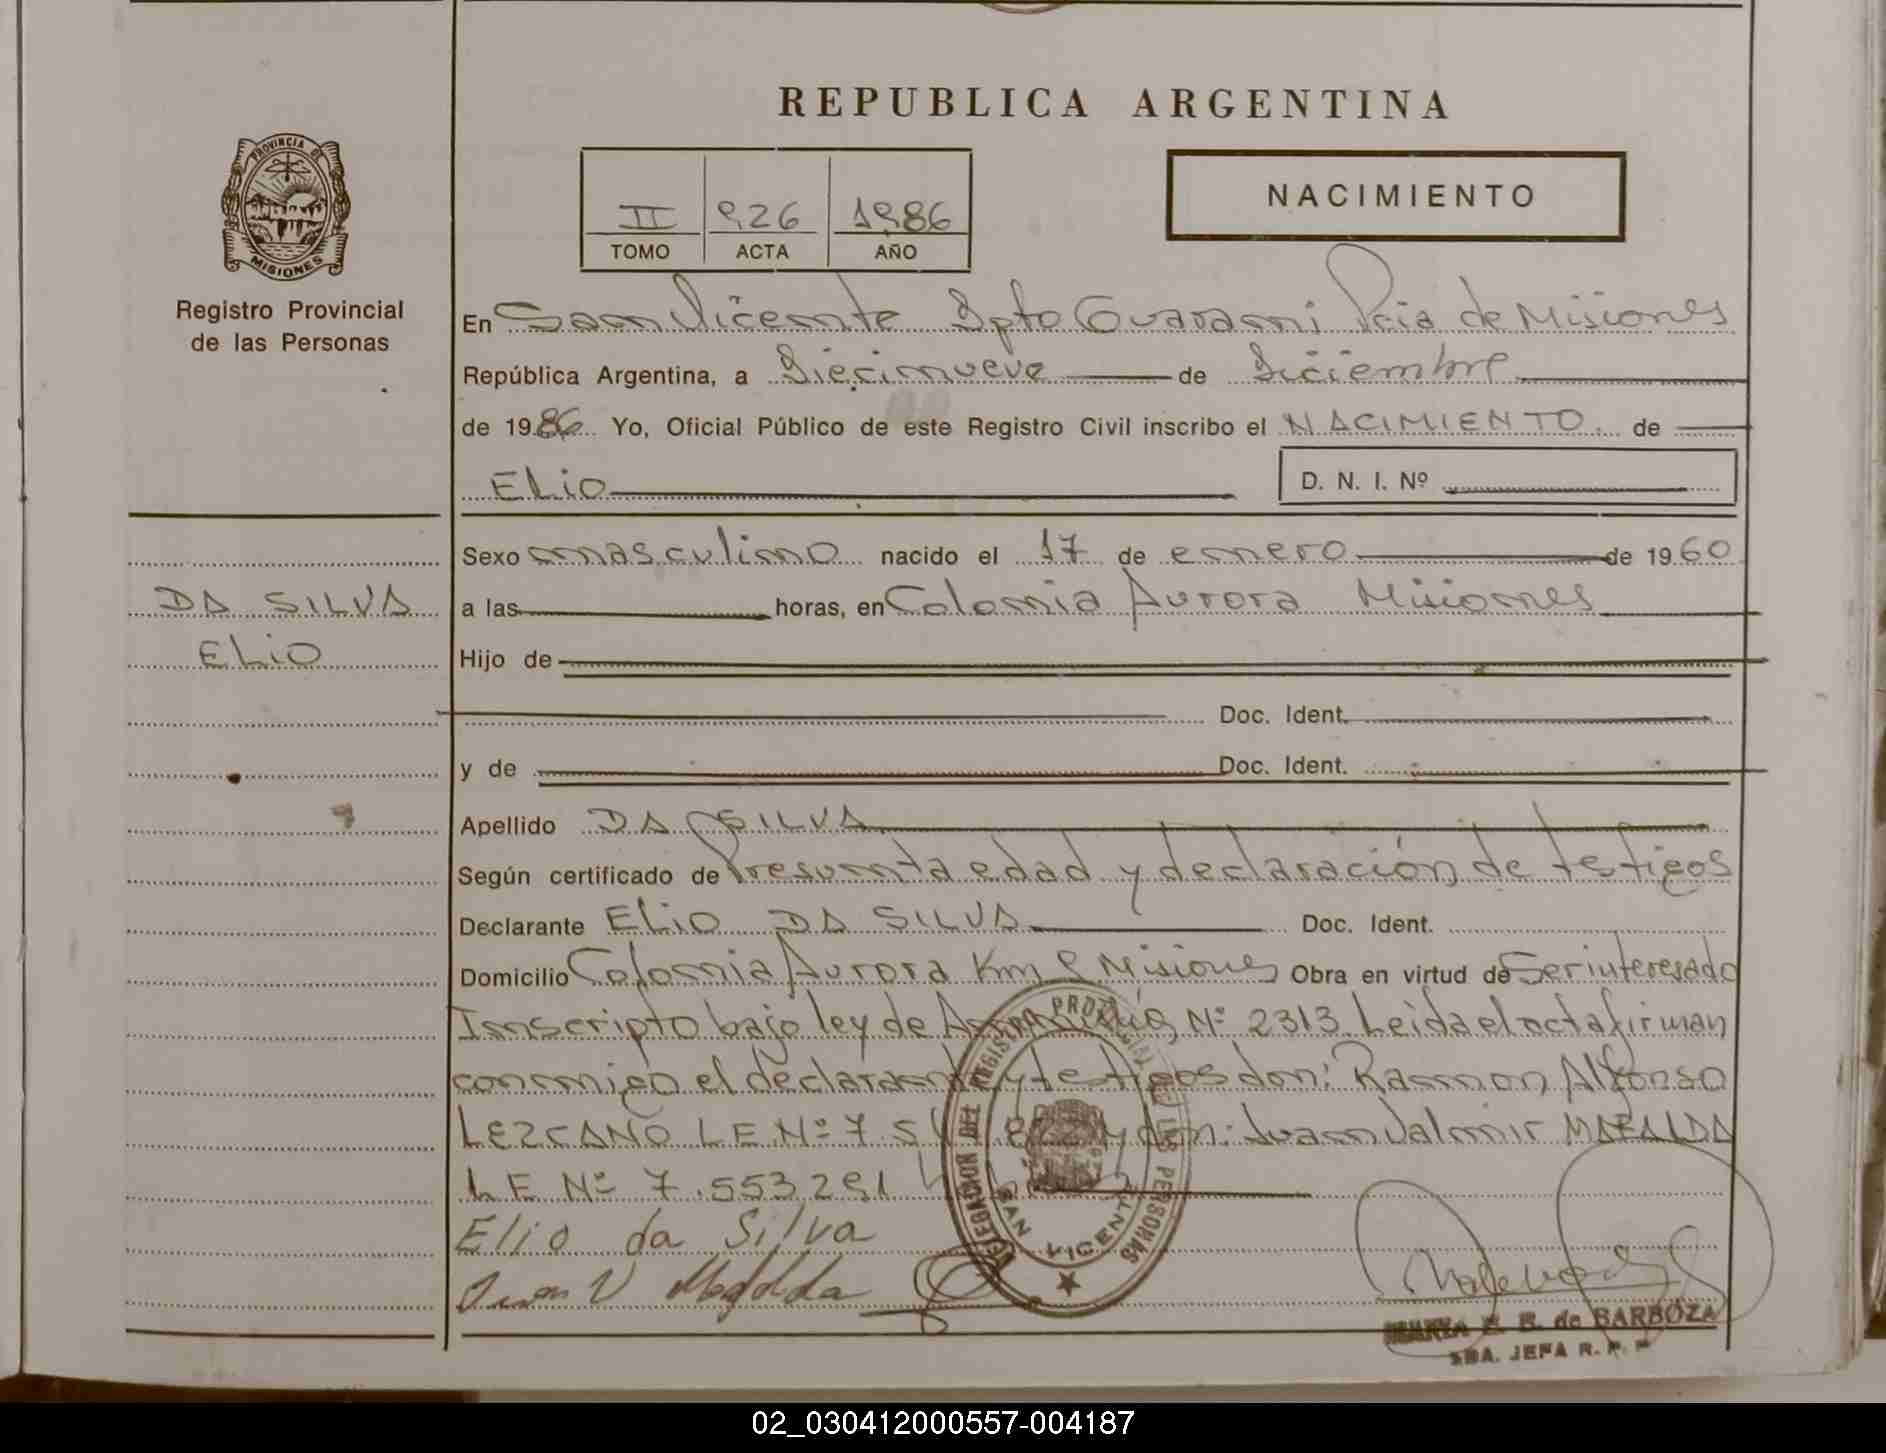 REPUBLICA ARGENTINA
PROVINCIA DE
MISIONES
Registro Provincial
de las Personas
II 926 1986
TOMO ACTA AÑO
NACIMIENTO
En San Vicente Dpto Guarani Pcia de Misiones
República Argentina, a Diecinueve de Diciembre
de 1986 Yo, Oficial Público de este Registro Civil inscribo el NACIMIENTO de
ELiO D. N. I. Nº
Sexo masculino nacido el 17 de enero de 1960
DA SILVA
ELiO
a las horas, en Colonia Aurora Misiones
Hijo de
Doc. Ident.
y de Doc. Ident.
Apellido DA SILVA
Según certificado de Presunta edad y declaración de testigos
Declarante ELiO DA SILVA Doc. Ident.
Domicilio Colonia Aurora Km 9 Misiones Obra en virtud de Ser interesado
Inscripto bajo ley de Nº 2313. Leida el acta firman
conmigo el declarante y testigos don: Ramon Alfonso
LEZCANO LE Nº 7 y don: Juan Valmir MAFALDA
LE Nº 7.553.291
Elio da Silva
Juan V Mafalda
DELEGACION DEL REGISTRO PROVINCIAL DE LAS PERSONAS
SAN VICENTE
MARIA E. B. de BARBOZA
SDA. JEFA R. P. P
02_030412000557-004187